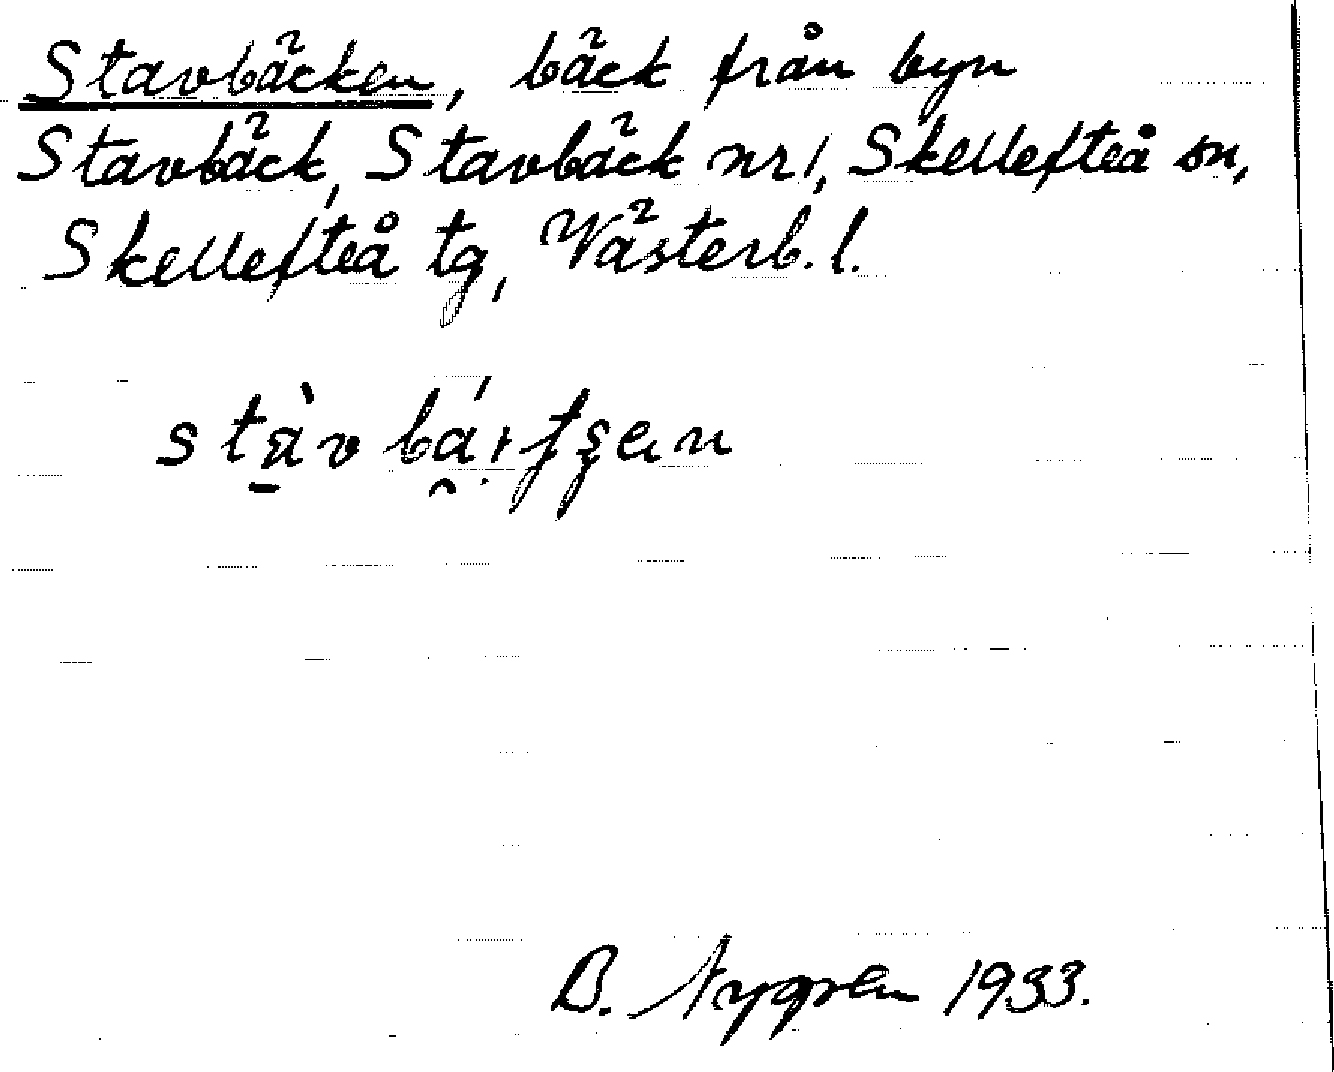 Stavbäcken, bäck från byn
Stavbäck, Stavbäck nr 1, Skellefteå sn,
Skellefteå tg, Västerb. l.
B. Nygren 1933.